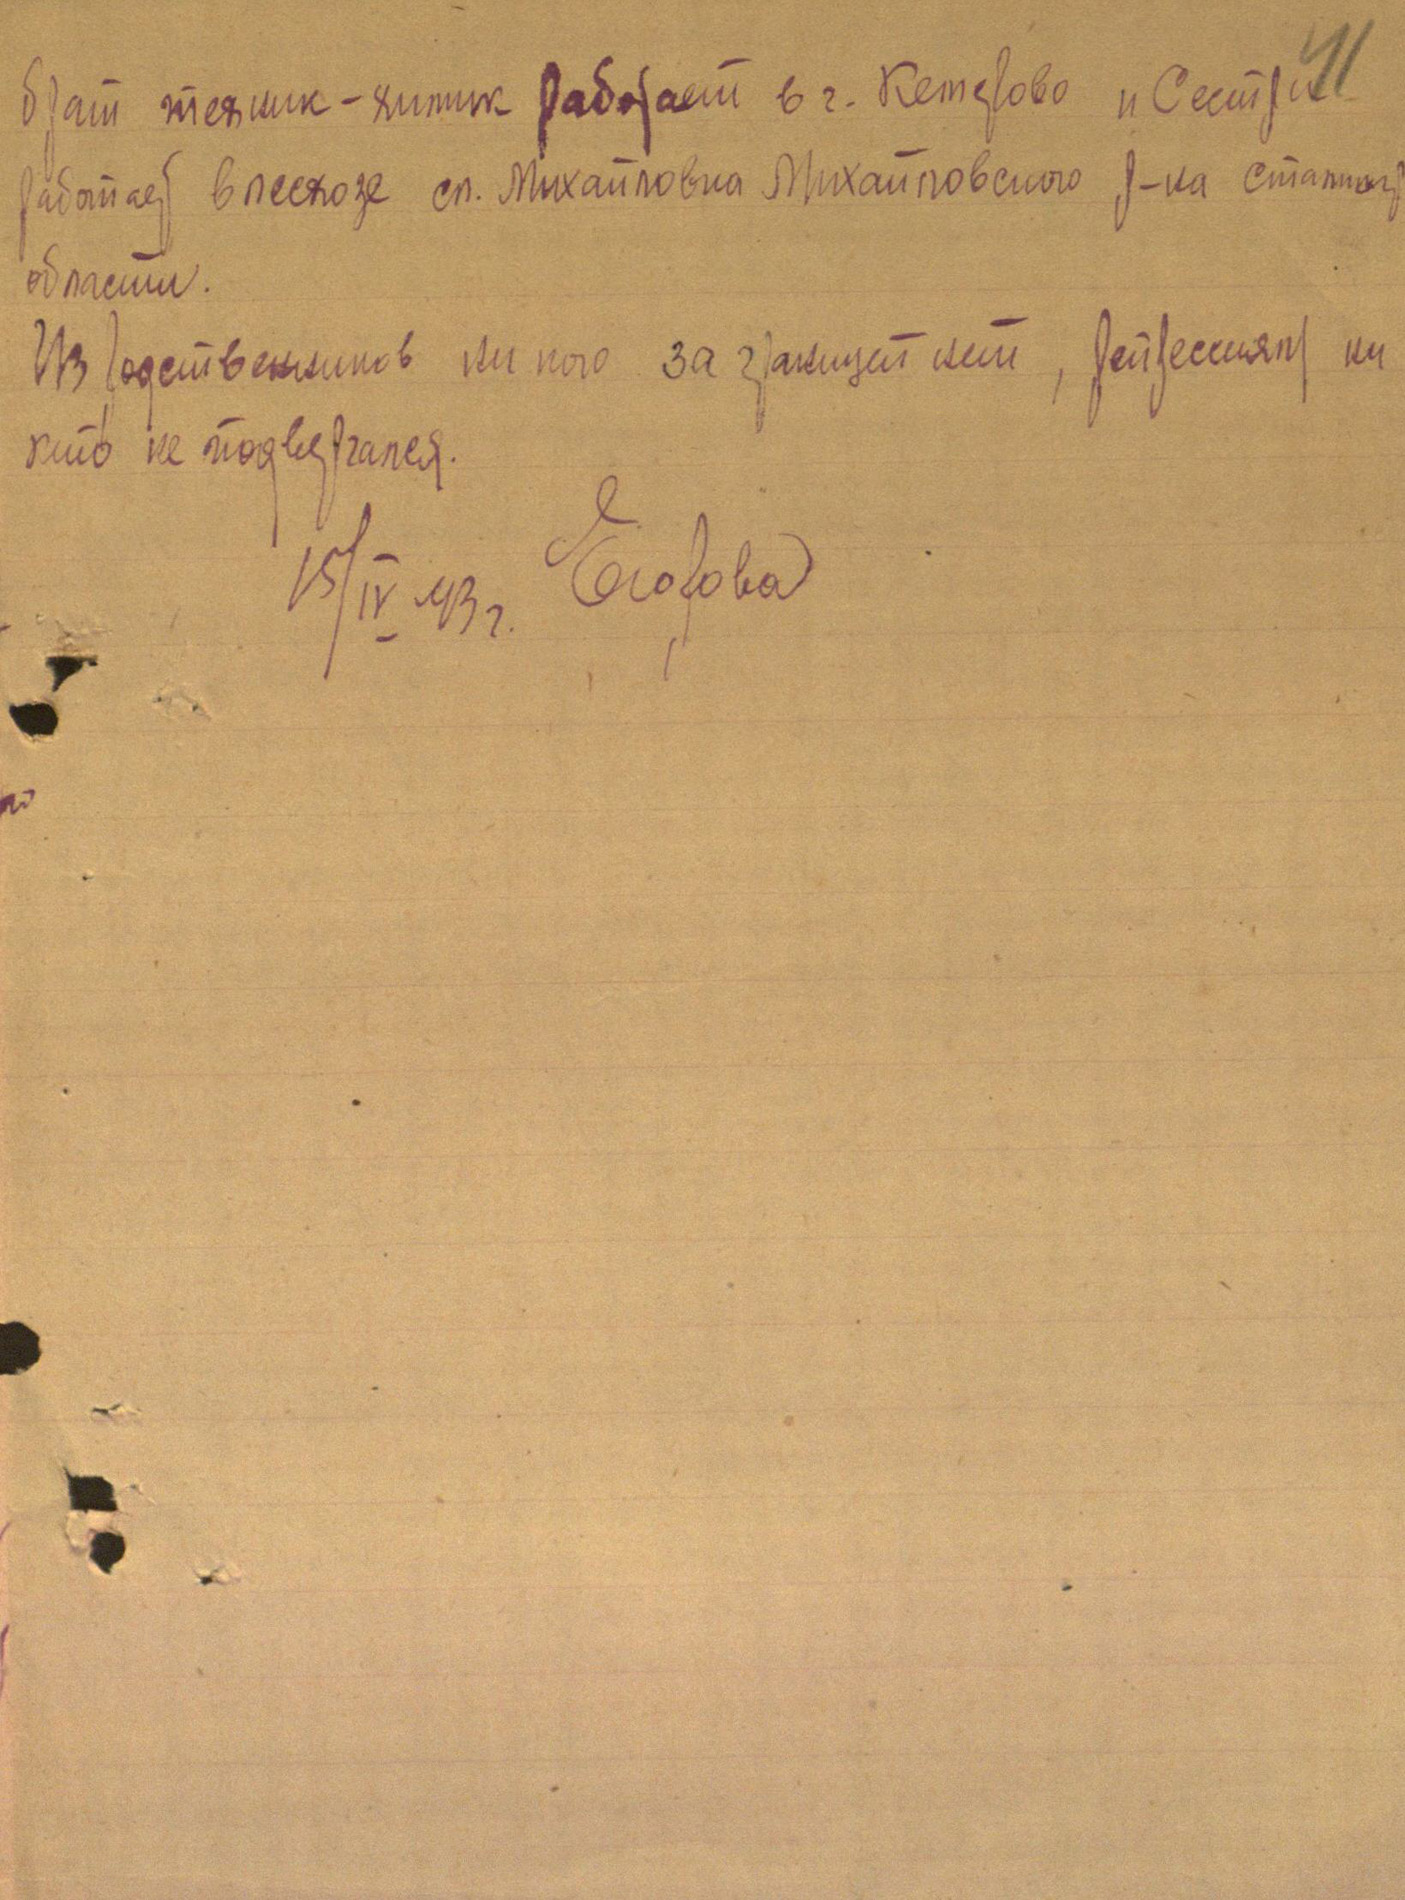 41
брат техник-химик работает в г. Кемерово и Сестра
работает в лесхозе сл. Михайловка Михайловского р-на Сталингр
области.
Из родственников ни кого за границей нет, репрессиям ни
кто не подвергался.
15/IV 43 г. Егорова